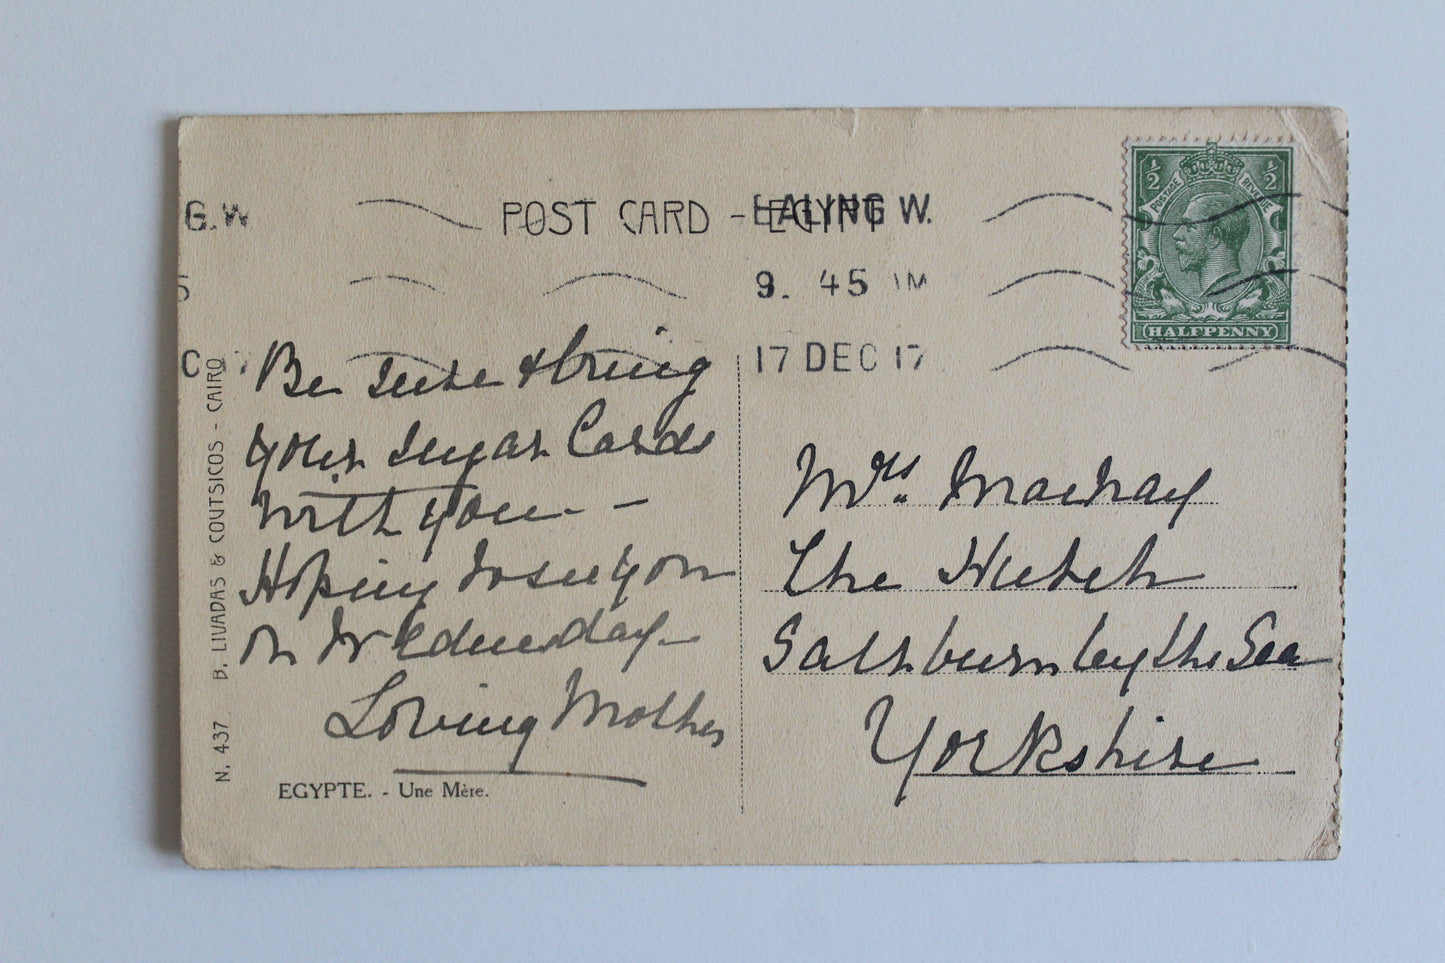 G.W
POST CARD - EGYPT
EALING W.
9. 45 AM
17 DEC 17
5
C 17
½ ½
POSTAGE REVENUE
HALFPENNY
Be sure & bring
your Sugar Cards
with you - -
Hoping to see you
on Wednesday -
Loving Mother
Mrs. Mackay
The Hutch
Saltburn by the Sea
Yorkshire
N. 437 B. LIVADAS & COUTSICOS - CAIRO
EGYPTE. - Une Mère.